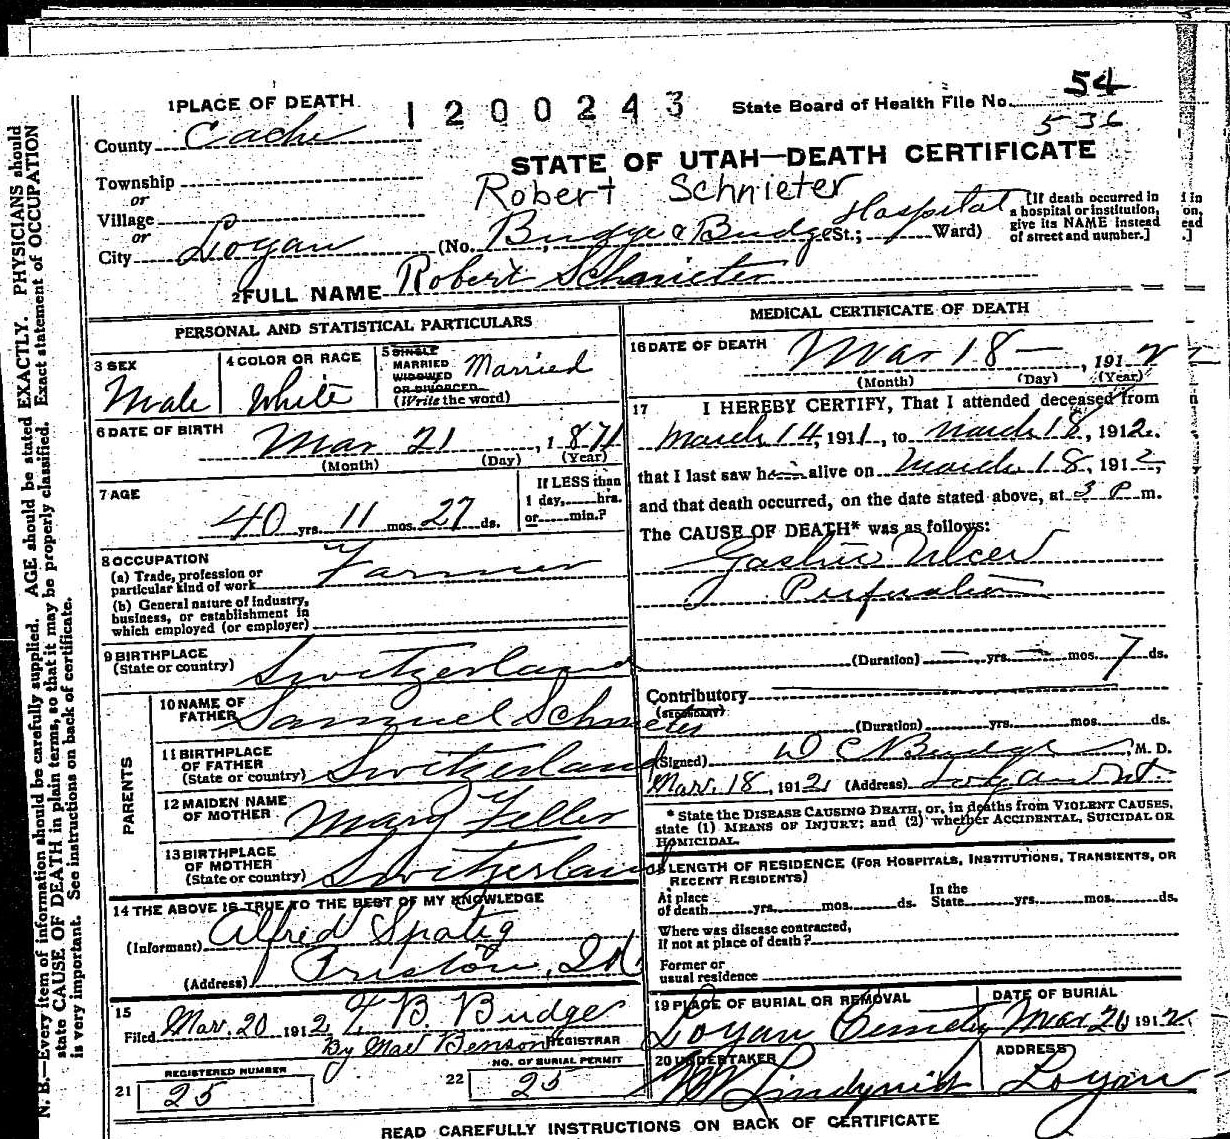 1 PLACE OF DEATH
1200243
State Board of Health File No. 54
536
County Cache
STATE OF UTAH—DEATH CERTIFICATE
Township
or
Robert Schnieter
Village
or
City Logan (No. Budge & Budge St.; Hospital Ward)
[If death occurred in
a hospital or institution,
give its NAME instead
of street and number.]
2 FULL NAME Robert Schnieter
PERSONAL AND STATISTICAL PARTICULARS
3 SEX
Male
4 COLOR OR RACE
White
5 SINGLE
MARRIED
WIDOWED
OR DIVORCED
(Write the word)
Married
6 DATE OF BIRTH
Mar 21, 1871
(Month) (Day) (Year)
7 AGE
40 yrs. 11 mos. 27 ds.
If LESS than
1 day, hrs.
or min.?
8 OCCUPATION
(a) Trade, profession or
particular kind of work Farmer
(b) General nature of industry,
business, or establishment in
which employed (or employer)
9 BIRTHPLACE
(State or country) Switzerland
PARENTS
10 NAME OF
FATHER Samuel Schnieter
11 BIRTHPLACE
OF FATHER
(State or country) Switzerland
12 MAIDEN NAME
OF MOTHER Mary Feller
13 BIRTHPLACE
OF MOTHER
(State or country) Switzerland
14 THE ABOVE IS TRUE TO THE BEST OF MY KNOWLEDGE
(Informant) Alfred Spatig
(Address) Preston, Id
15
Filed Mar. 20 1912 T B. Budge
REGISTRAR
By Mae Benson
21 REGISTERED NUMBER
25
22 NO. OF BURIAL PERMIT
25
MEDICAL CERTIFICATE OF DEATH
16 DATE OF DEATH
Mar 18 —, 1912
(Month) (Day) (Year)
17 I HEREBY CERTIFY, That I attended deceased from
March 14, 1911, to March 18, 1912.
that I last saw him alive on March 18, 1912,
and that death occurred, on the date stated above, at 3 P m.
The CAUSE OF DEATH* was as follows:
Gastric Ulcer
Perforation
(Duration) — yrs. — mos. 7 ds.
Contributory
(SECONDARY)
(Duration) yrs. mos. ds.
(Signed) D C Budge M. D.
Mar. 18, 1912 (Address) Logan Ut.
* State the DISEASE CAUSING DEATH, or, in deaths from VIOLENT CAUSES,
state (1) MEANS OF INJURY; and (2) whether ACCIDENTAL, SUICIDAL OR
HOMICIDAL.
18 LENGTH OF RESIDENCE (FOR HOSPITALS, INSTITUTIONS, TRANSIENTS, OR
RECENT RESIDENTS)
At place
of death yrs. mos. ds.
In the
State yrs. mos. ds.
Where was disease contracted,
If not at place of death?
Former or
usual residence
19 PLACE OF BURIAL OR REMOVAL
Logan Cemetery
DATE OF BURIAL
Mar 20 1912
20 UNDERTAKER
Lindquist
ADDRESS
Logan
READ CAREFULLY INSTRUCTIONS ON BACK OF CERTIFICATE
N. B.—Every item of information should be carefully supplied. AGE should be stated EXACTLY. PHYSICIANS should
state CAUSE OF DEATH in plain terms, so that it may be properly classified. Exact statement of OCCUPATION
is very important. See instructions on back of certificate.